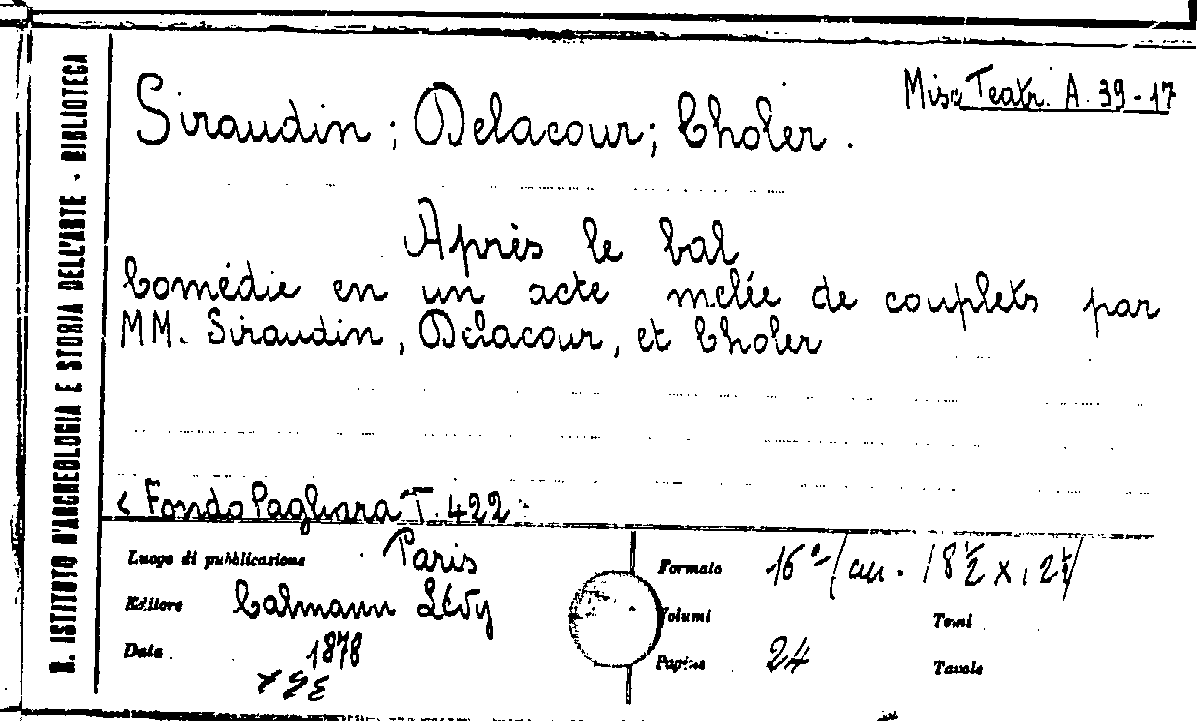 R. ISTITUTO D'ARCHEOLOGIA E STORIA DELL'ARTE - BIBLIOTECA
Misc Teatr. A. 39-17
Siraudin ; Delacour; Choler .
Après le bal
Comédie en un acte melée de couplets par
MM. Siraudin, Delacour, et Choler
< Fondo Pagliara T. 422
Luogo di pubblicazione Paris
Editore Calmann Lévy
Data 1878
Formato 16°/cm. 18 1/2 x 12 1/2
Volumi Tomi
Pagine 24 Tavole